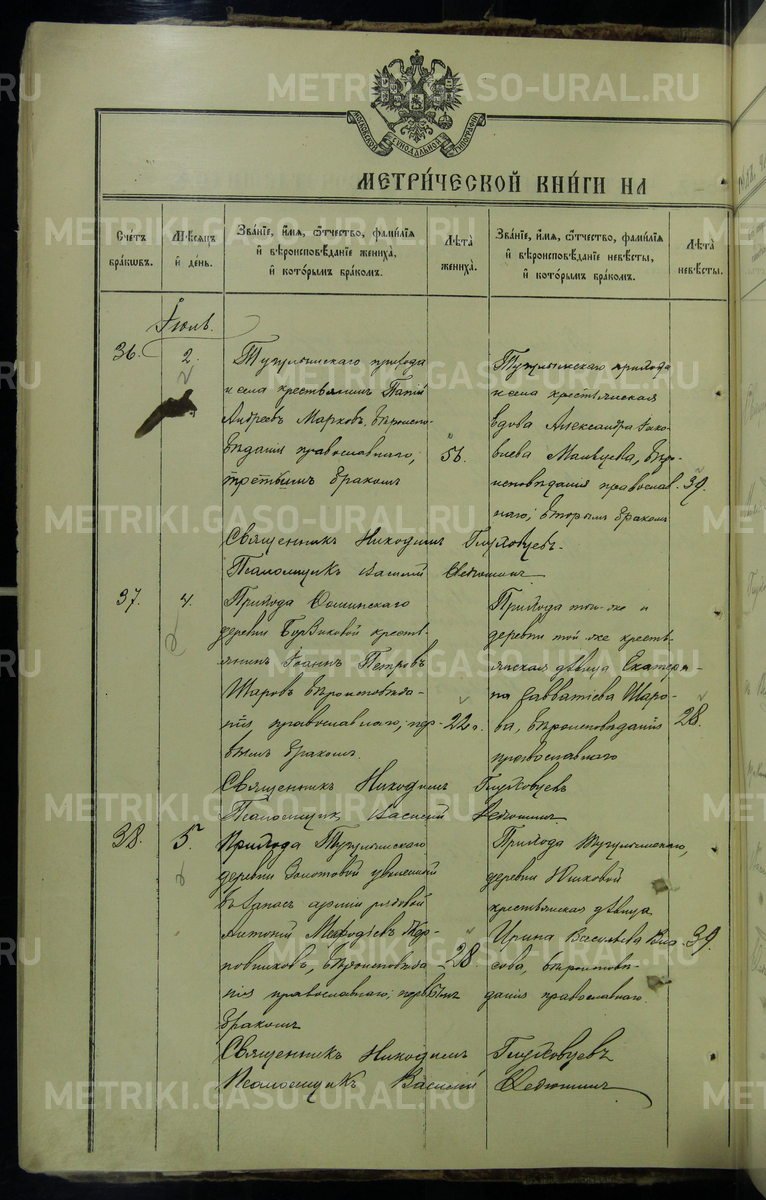 METRIKI.GASO-URAL.RU
МОСКОВСКОЙ СѴНОДАЛЬНОЙ ТИПОГРАФІИ
МЕТРИ́ЧЕСКОЙ КНИ́ГИ НА
Сче́тъ бра́кѡвъ.
Мѣ́сѧцъ и҆ де́нь.
Зва́нїе, и҆́мѧ, ѻ҆́тчество, фами́лїѧ
и҆ вѣроисповѣ́данїе жениха̀,
и҆ кото́рымъ бра́комъ.
Лѣ́та жениха̀.
Зва́нїе, и҆́мѧ, ѻ҆́тчество, фами́лїѧ
и҆ вѣроисповѣ́данїе невѣ́сты,
и҆ кото́рымъ бра́комъ.
Лѣ́та невѣ́сты.
Іюль.
36.
2.
Тугулымскаго прихода
и села крестьянинъ
Андреевъ Марковъ, вѣроиспо-
вѣданія православнаго,
третьимъ бракомъ
56.
Тугулымскаго прихода
и села крестьянская
вдова Александра Яко-
влева вѣро-
исповѣданія православ-
наго, вторымъ бракомъ
39.
Священникъ Никодимъ Глуховцевъ
Псаломщикъ Василій Федюшинъ
37.
4.
Прихода
деревни кресть-
янинъ Іоаннъ Петровъ
Шаровъ вѣроисповѣда-
нія православнаго, пер-
вымъ бракомъ.
22
Прихода того-же и
деревни той же кресть-
янская дѣвица Екатери-
на Савватіева Шаро-
ва, вѣроисповѣданія
православнаго
28.
Священникъ Никодимъ Глуховцевъ
Псаломщикъ Василій Федюшинъ
38.
5.
Прихода Тугулымскаго
деревни Золотовой уволенный
въ запасъ арміи рядовой
Антоній Меѳодіевъ
вѣроисповѣда-
нія православнаго, первымъ
бракомъ
28.
Прихода Тугулымскаго,
деревни
крестьянская дѣвица
Ирина Васильева Вла-
сова, вѣроисповѣ-
данія православнаго.
39.
Священникъ Никодимъ Глуховцевъ
Псаломщикъ Василій Федюшинъ